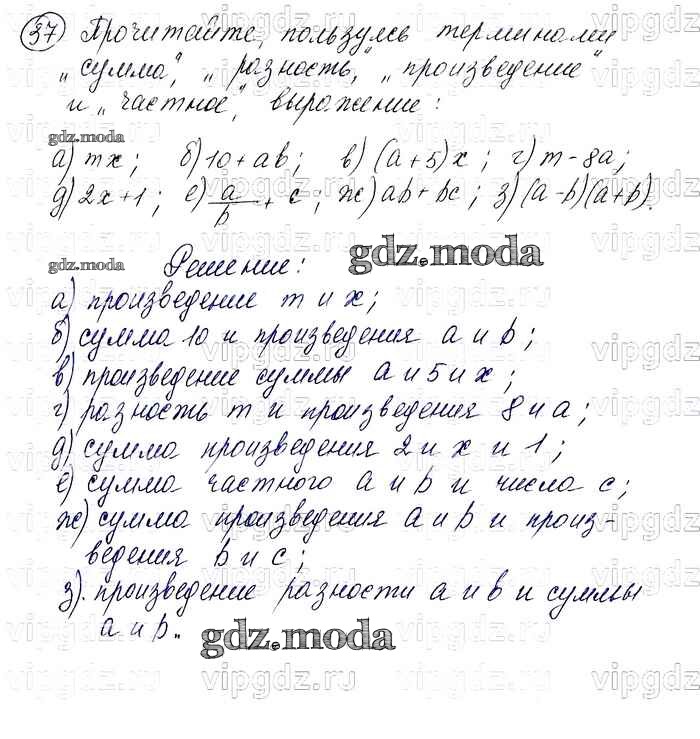 37 Прочитайте, пользуясь терминами
„сумма", „разность", „произведение"
и „частное", выражение:
gdz.moda
а) mx; б) 10 + ab; в) (a + 5)x; г) m - 8a;
д) 2x + 1; е) a/b + c; ж) ab + bc; з) (a - b)(a + b).
gdz.moda Решение: gdz.moda
а) произведение m и x;
б) сумма 10 и произведения a и b;
в) произведение суммы a и 5 и x;
г) разность m и произведения 8 и a;
д) сумма произведения 2 и x и 1;
е) сумма частного a и b и числа c;
ж) сумма произведения a и b и произ-
ведения b и c;
з). произведение разности a и b и суммы
a и b.. gdz.moda
vipgdz.ru